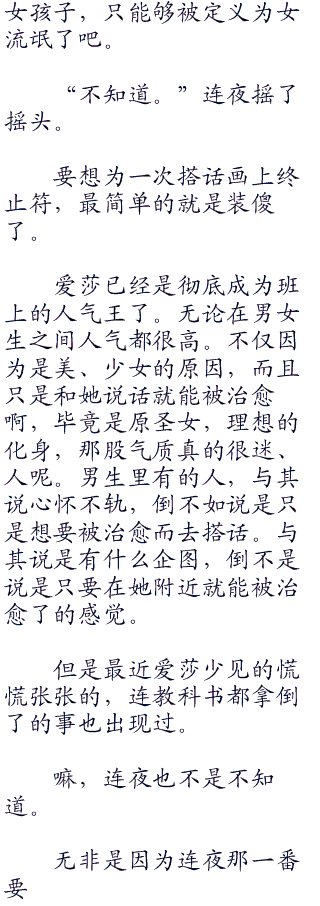 女孩子，只能够被定义为女
流氓了吧。
“不知道。”连夜摇了
摇头。
要想为一次搭话画上终
止符，最简单的就是装傻
了。
爱莎已经是彻底成为班
上的人气王了。无论在男女
生之间人气都很高。不仅因
为是美、少女的原因，而且
只是和她说话就能被治愈
啊，毕竟是原圣女，理想的
化身，那股气质真的很迷、
人呢。男生里有的人，与其
说心怀不轨，倒不如说是只
是想要被治愈而去搭话。与
其说是有什么企图，倒不是
说是只要在她附近就能被治
愈了的感觉。
但是最近爱莎少见的慌
慌张张的，连教科书都拿倒
了的事也出现过。
嘛，连夜也不是不知
道。
无非是因为连夜那一番
要